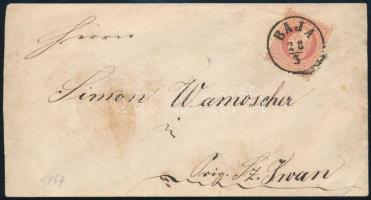 Herrn
BAJA
28
3
Simon Wamoscher
in
Orig. Sz. Iwan
1867